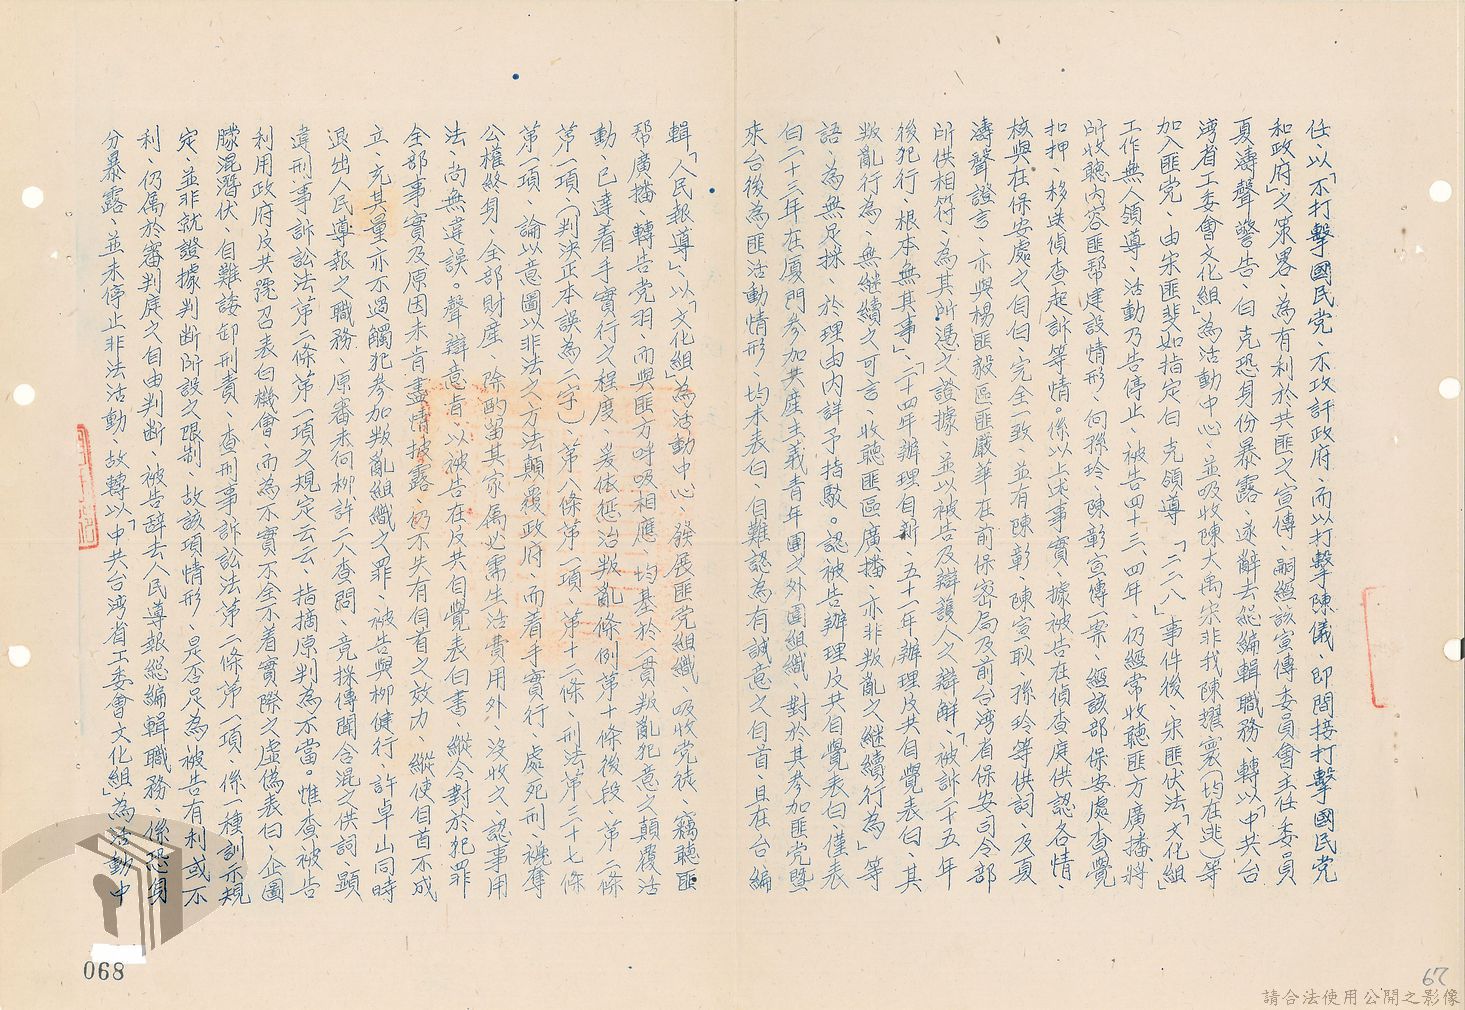 任、以「不打擊國民党、不攻訐政府、而以打擊陳儀、即間接打擊國民党
和政府」之策畧、為有利於共匪之宣傳、嗣經該宣傳委員會主任委員
夏濤聲警告、白克恐身份暴露、遂辭去総編輯職務、轉以「中共台
湾省工委會文化組」為活動中心、並吸收陳大禹宋非我陳耀寰(均在逃)等
加入匪党、由宋匪斐如指定白克領導「二二八」事件後、宋匪伏法「文化組」
工作無人領導、活動乃告停止、被告四十三、四年、仍經常收聽匪方廣播、將
所收聽內容匪帮建設情形、向孫玲、陳彰宣傳一案、經該部保安處查覺
扣押、移送偵查起訴等情。係以上述事實、據被告在偵查庭供認各情、
核與在保安處之自白、完全一致、並有陳彰、陳宣耿、孫玲等供詞、及夏
濤聲證言、亦與楊匪毅區匪嚴華在前保密局及前台湾省保安司令部
所供相符、為其所憑之證據、並以被告及辯護人之辯解、「被訴二十五年
後犯行、根本無其事」、「二十四年辦理自新、五十一年辦理反共自覺表白、其
叛亂行為、無継續之可言、收聽匪區廣播、亦非叛亂之継續行為」等
語、為無足採、於理由內詳予指駁。認被告辦理反共自覺表白、僅表
白二十三年在厦門參加共產主義青年團之外圍組織、對於其參加匪党暨
來台後為匪活動情形、均未表白、自難認為有誠意之自首、且在台、編
輯「人民報導」、以「文化組」為活動中心、發展匪党組織、吸收党徒、竊聽匪
帮廣播、轉告党羽、而與匪方呼吸相應、均基於一貫叛亂犯意之顛覆活
動、已達着手實行之程度、爰依懲治叛亂條例第十條後段、第二條
第一項、(判決正本誤為二字)、第八條第一項、第十二條、刑法第三十七條
第一項、論以意圖以非法之方法顛覆政府、而着手實行、處死刑、褫奪
公權終身、全部財產、除酌留其家属必需生活費用外、沒收之、認事用
法、尚無違誤。聲辯意旨、以被告在反共自覺表白書、縱令對於犯罪
全部事實及原因未肯盡情披露、仍不失有自首之效力、縱使自首不成
立、充其量亦不過觸犯參加叛亂組織之罪、被告與柳健行、許卓山同時
退出人民導報之職務、原審未向柳許二人查問、竟採傳聞含混之供詞、顯
違刑事訴訟法第二條第一項之規定云云、指摘原判為不當。惟查被告
利用政府反共號召表白機會、而為不實不全不着實際之虛偽表白、企圖
朦混潛伏、自難諉卸刑責、查刑事訴訟法第二條第一項、係一種訓示規
定、並非就證據判断所設之限制、故該項情形、是否足為被告有利或不
利、仍属於審判庭之自由判断、被告辭去人民導報総編輯職務、係恐身
分暴露、並未停止非法活動、故轉以「中共台湾省工委會文化組」為活動中
068
67
請合法使用公開之影像